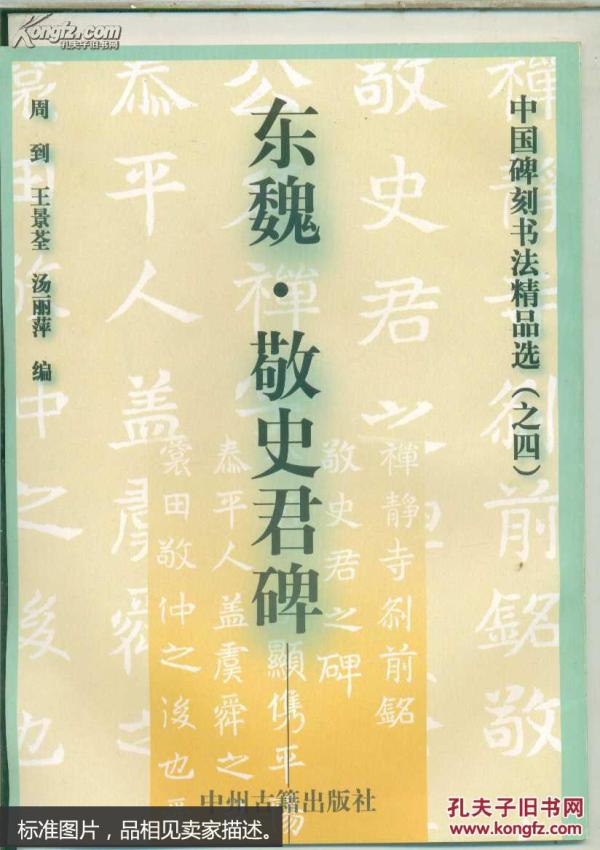 Kongfz.com
孔夫子旧书网
中国碑刻书法精品选（之四）
东魏·敬史君碑
周到 王景荃 汤丽萍 编
禅静寺刹前銘
敬史君之碑
公
顯儁平
泰平人蓋虞舜之
裳田敬仲之後也
中州古籍出版社
标准图片，品相见卖家描述。
孔夫子旧书网
www.kongfz.com